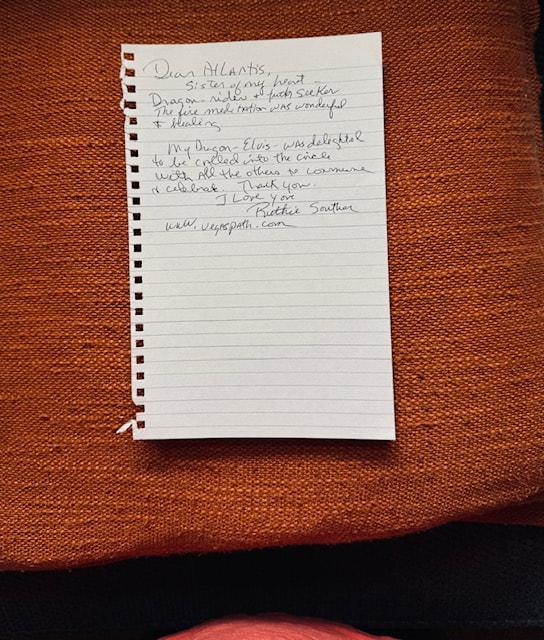 Dear Atlantis,
Sister of my heart -
Dragon-rider + truth seeker
The fire meditation was wonderful
+ healing
My Dragon - Elvis - was delighted
to be called into the circle
with all the others to commune
+ celebrate. Thank you.
I Love you
Ruthie Southar
www.vegaspath.com